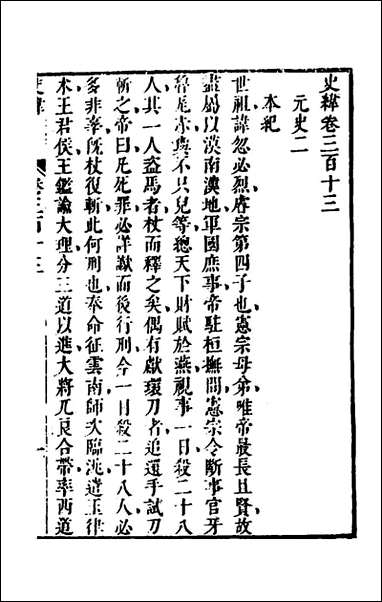 史緯卷三百十三
元史二
本紀
世祖諱忽必烈睿宗第四子也憲宗母弟唯帝最長且賢故
盡屬以漢南漢地軍國庶事帝駐桓撫間憲宗令斷事官牙
魯尾赤與不只兒等總天下財賦於燕視事一日殺二十八
人其一人盜馬者杖而釋之矣偶有獻環刀者追還手試刀
斬之帝曰凡死罪必詳讞而後行刑今一日殺二十八人必
多非辜既杖復斬此何刑也奉命征雲南師次臨洮遣玉律
朮王君侯王鑑諭大理分三道以進大將兀良合帶率西道